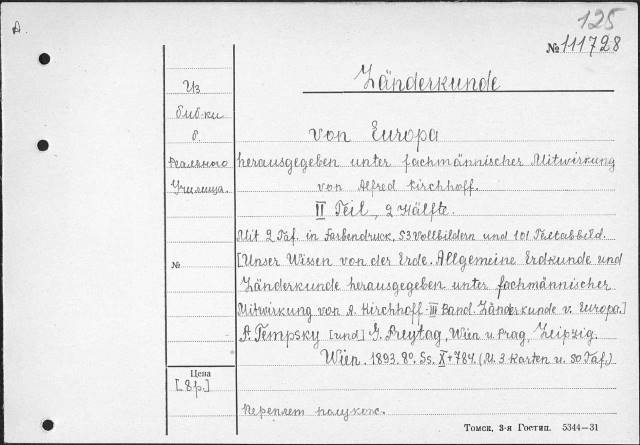 125
№ 111728
Länderkunde
Из
биб-ки
б.
Реального
Училища.
von Europa
herausgegeben unter fachmännischer Mitwirkung
von Alfred Kirchhoff.
II Teil, 2 Hälfte.
Mit 2 Taf. in Farbendruck, 53 Vollbildern und 101 Textabbild.
№
[Unser Wissen von der Erde. Allgemeine Erdkunde und
Länderkunde herausgegeben unter fachmännischer
Mitwirkung von A. Kirchhoff - III Band. Länderkunde v. Europa.]
F. Tempsky [und] G. Freytag, Wien u. Prag, Leipzig.
Wien. 1893. 8°. Ss. X + 784. (M. 3 Karten u. 50 Taf.)
Цена
[8р.]
Переплет полукож.
Томск, 3-я Гостип. 5344—31